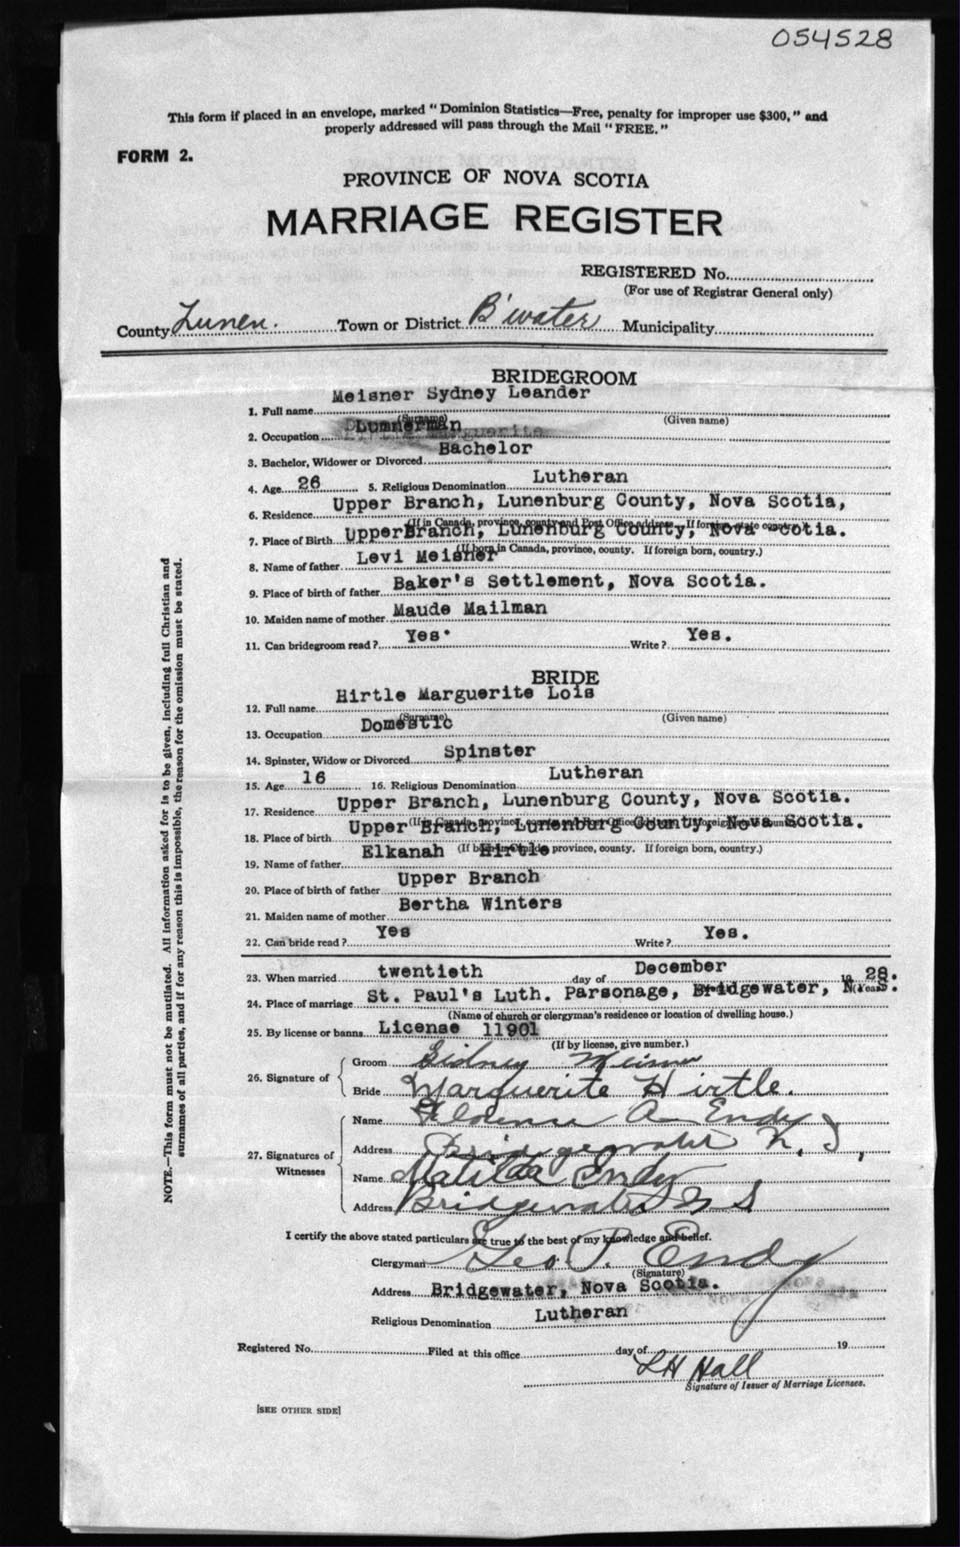 054528
This form if placed in an envelope, marked "Dominion Statistics—Free, penalty for improper use $300," and
properly addressed will pass through the Mail "FREE."
FORM 2.
PROVINCE OF NOVA SCOTIA
MARRIAGE REGISTER
REGISTERED No.
(For use of Registrar General only)
County Lunen. Town or District B'water Municipality
BRIDEGROOM
1. Full name Meisner Sydney Leander
(Surname) (Given name)
2. Occupation Lumnerman
3. Bachelor, Widower or Divorced Bachelor
4. Age 26 5. Religious Denomination Lutheran
6. Residence Upper Branch, Lunenburg County, Nova Scotia,
(If in Canada, province, county and Post Office address. If foreign, state country.)
7. Place of Birth UpperBranch, Lunenburg County, Nova cotia.
(If born in Canada, province, county. If foreign born, country.)
8. Name of father Levi Meisner
9. Place of birth of father Baker's Settlement, Nova Scotia.
10. Maiden name of mother Maude Mailman
11. Can bridegroom read? Yes. Write? Yes.
BRIDE
12. Full name Hirtle Marguerite Lois
(Surname) (Given name)
13. Occupation Domestic
14. Spinster, Widow or Divorced Spinster
15. Age 16 16. Religious Denomination Lutheran
17. Residence Upper Branch, Lunenburg County, Nova Scotia.
18. Place of birth Upper Branch, Lunenburg County, Nova Scotia.
(If born in Canada, province, county. If foreign born, country.)
19. Name of father Elkanah Hirtle
20. Place of birth of father Upper Branch
21. Maiden name of mother Bertha Winters
22. Can bride read? Yes Write? Yes.
23. When married twentieth day of December 19 28.
(Year)
24. Place of marriage St. Paul's Luth. Parsonage, Bridgewater, N. S.
(Name of church or clergyman's residence or location of dwelling house.)
25. By license or banns License 11901
(If by license, give number.)
26. Signature of Groom Sidney Meisner
Bride Marguerite Hirtle.
27. Signatures of Witnesses Name Florence A Endy
Address Bridgewater N. S,
Name Matilda Endy
Address Bridgewater N S
I certify the above stated particulars are true to the best of my knowledge and belief.
Clergyman Geo. P. Endy
(Signature)
Address Bridgewater, Nova Scotia.
Religious Denomination Lutheran
Registered No. Filed at this office day of 19
LH Hall
Signature of Issuer of Marriage Licenses.
[SEE OTHER SIDE]
NOTE.—This form must not be mutilated. All information asked for is to be given, including full Christian and
surnames of all parties, and if for any reason this is impossible, the reason for the omission must be stated.